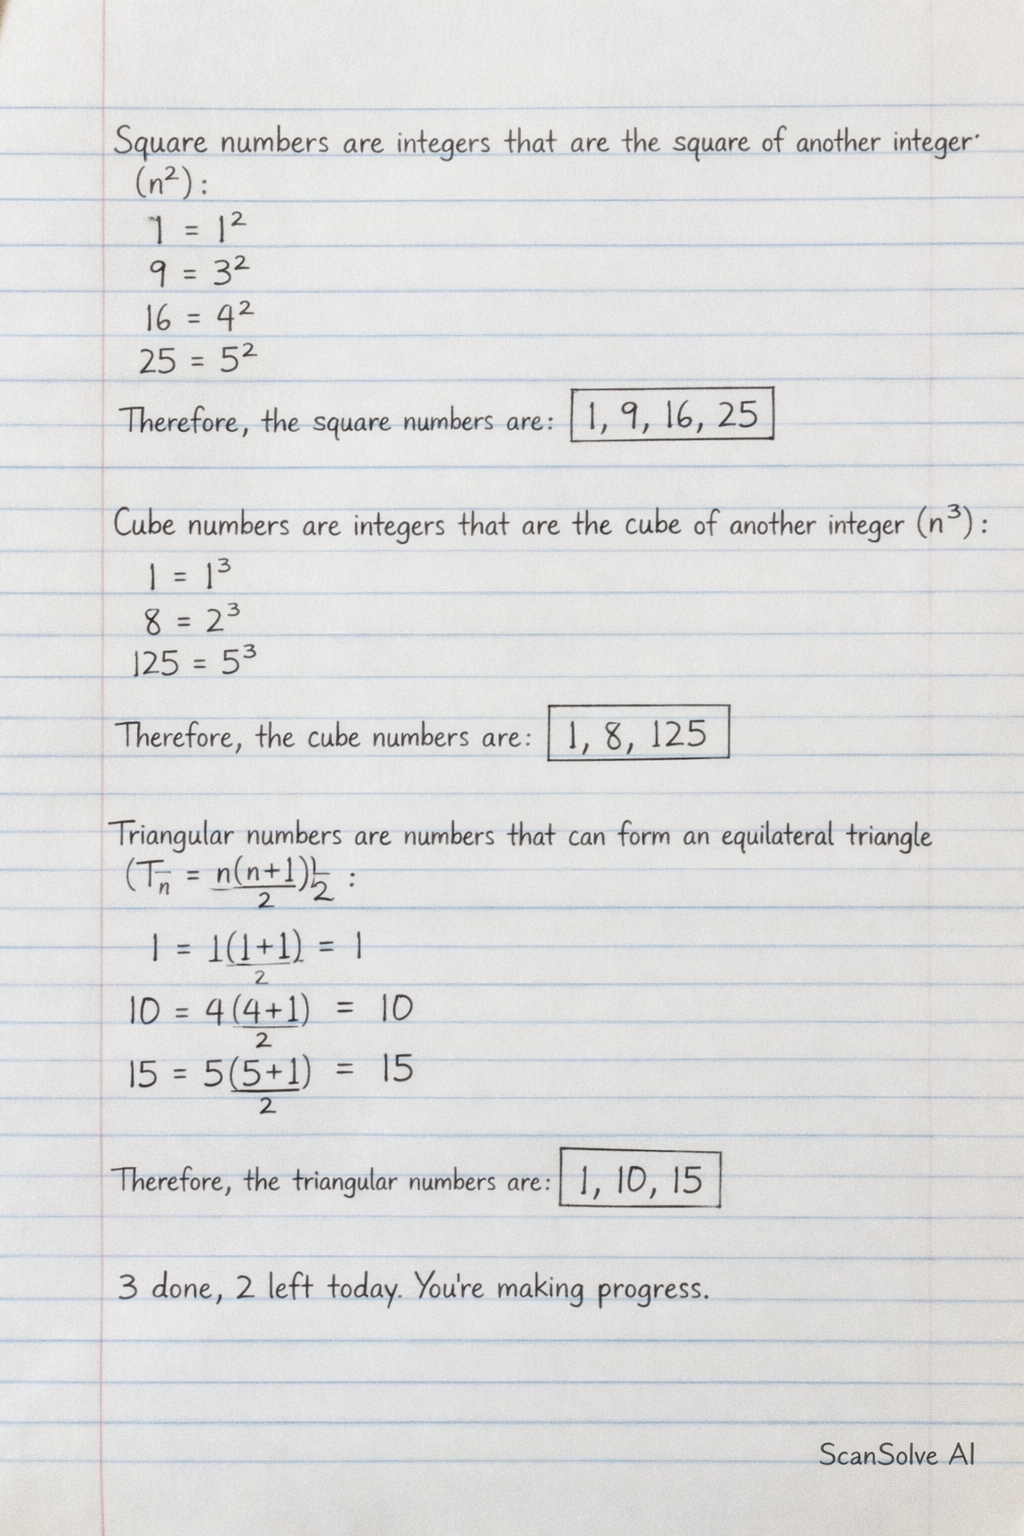 Square numbers are integers that are the square of another integer
(n²):
1 = 1²
9 = 3²
16 = 4²
25 = 5²
Therefore, the square numbers are: 1, 9, 16, 25
Cube numbers are integers that are the cube of another integer (n³):
1 = 1³
8 = 2³
125 = 5³
Therefore, the cube numbers are: 1, 8, 125
Triangular numbers are numbers that can form an equilateral triangle
(Tn = n(n+1)/2) :
1 = 1(1+1)/2 = 1
10 = 4(4+1)/2 = 10
15 = 5(5+1)/2 = 15
Therefore, the triangular numbers are: 1, 10, 15
3 done, 2 left today. You're making progress.
ScanSolve AI